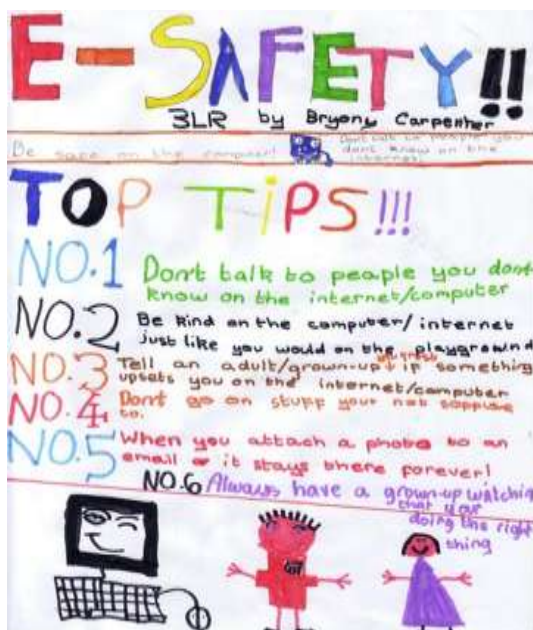 E-SAFETY!!
3LR by Bryony Carpenter
Be safe on the computer!
Dont talk to people you
dont know on the
internet!
TOP TIPS!!!
NO.1 Dont talk to people you dont
know on the internet/computer
NO.2 Be kind on the computer/internet
just like you would on the playground
NO.3 Tell an adult/grown-up if something
upsets you on the internet/computer
NO.4 Dont go on stuff your not suppose
to.
NO.5 When you attach a photo to an
email it stays there forever!
NO.6 Always have a grown-up watching
that your
doing the right
thing